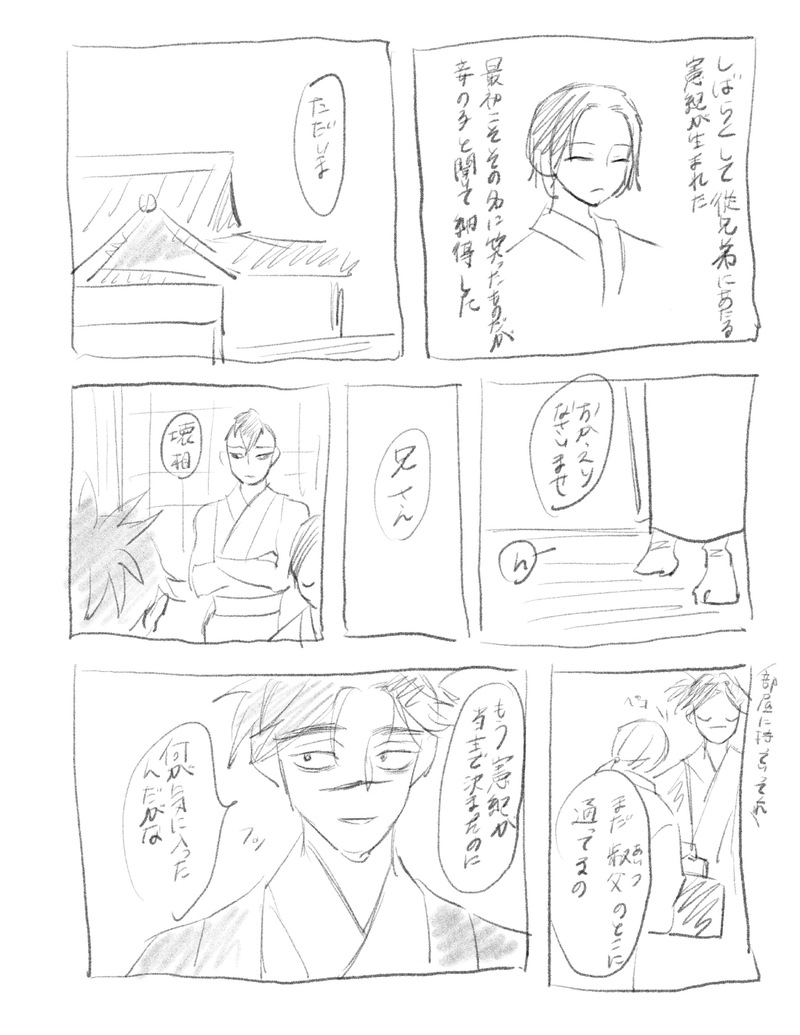 しばらくして従兄弟にあたる
憲紀が生まれた
最初こそその名に笑ったものだが
幸の子と聞いて納得した
ただいま
おかえり
なさいませ
ん
兄さん
壊相
部屋に持ってってくれ
ペコ
まだ叔父のとこに
あいつ
通ってるの
もう憲紀が
当主で決まったのに
何が気に入った
んだがな
フッ